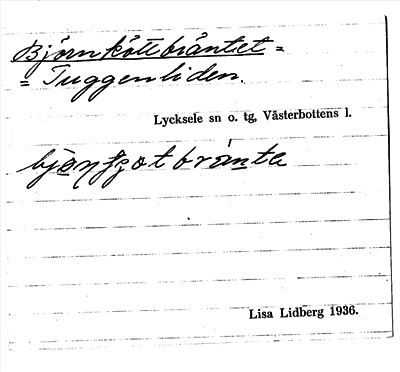 Björnköttbräntet =
= Tuggenliden.
Lycksele sn o. tg, Västerbottens l.
Lisa Lidberg 1936.